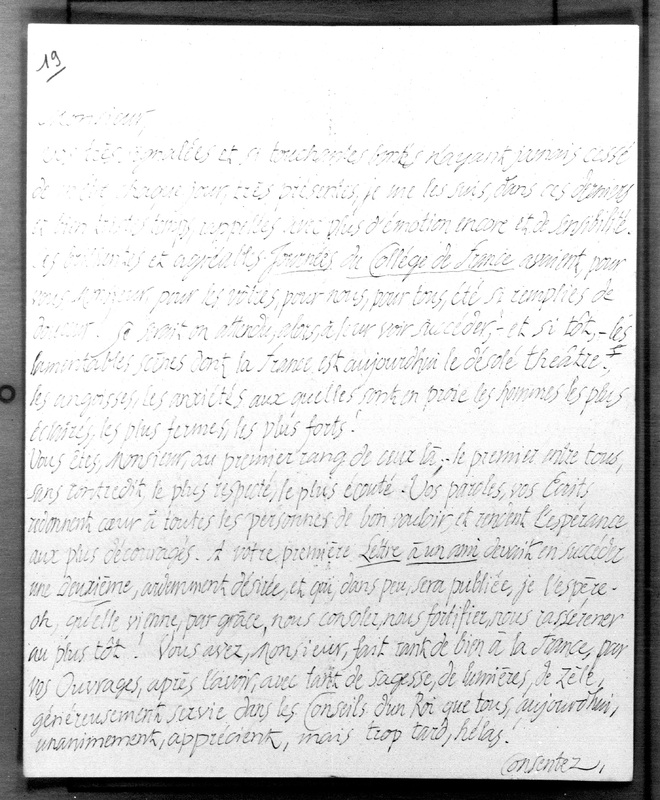 19
Monsieur,
Vos très signalées et si touchantes bontés n'ayant jamais cessé
de m'être chaque jour, très présentes, je me les suis, dans ces derniers
et bien tristes temps, rappelées avec plus d'émotion encore et de sensibilité.
Ces brillantes et agréables Journées du Collège de France avaient, pour
vous, Monsieur, pour les vôtres, pour nous, pour tous, été si remplies de
douceur! Se serait on attendu, alors, à leur voir succéder, - et si tôt, - les
lamentables scènes dont la France est aujourd'hui le désolé théâtre!,
les angoisses, les anxiétés aux quelles sont en proie les hommes les plus
éclairés, les plus fermes, les plus forts!
Vous êtes, Monsieur, au premier rang de ceux là, - le premier entre tous,
sans contredit, le plus respecté, le plus écouté. Vos paroles, vos Écrits
redonnent cœur à toutes les personnes de bon vouloir, et rendent l'espérance
aux plus découragés. À votre première Lettre à un ami devait en succéder
une deuxième, ardemment désirée, et qui, dans peu, sera publiée, je l'espère -
oh, qu'elle vienne, par grâce, nous consoler, nous fortifier, nous rasséréner
au plus tôt! Vous avez, Monsieur, fait tant de bien à la France, par
vos Ouvrages, après l'avoir, avec tant de sagesse, de lumières, de zèle,
généreusement servie dans les Conseils d'un Roi que tous, aujourd'hui,
unanimement, apprécient, mais trop tard, hélas!
Consentez,